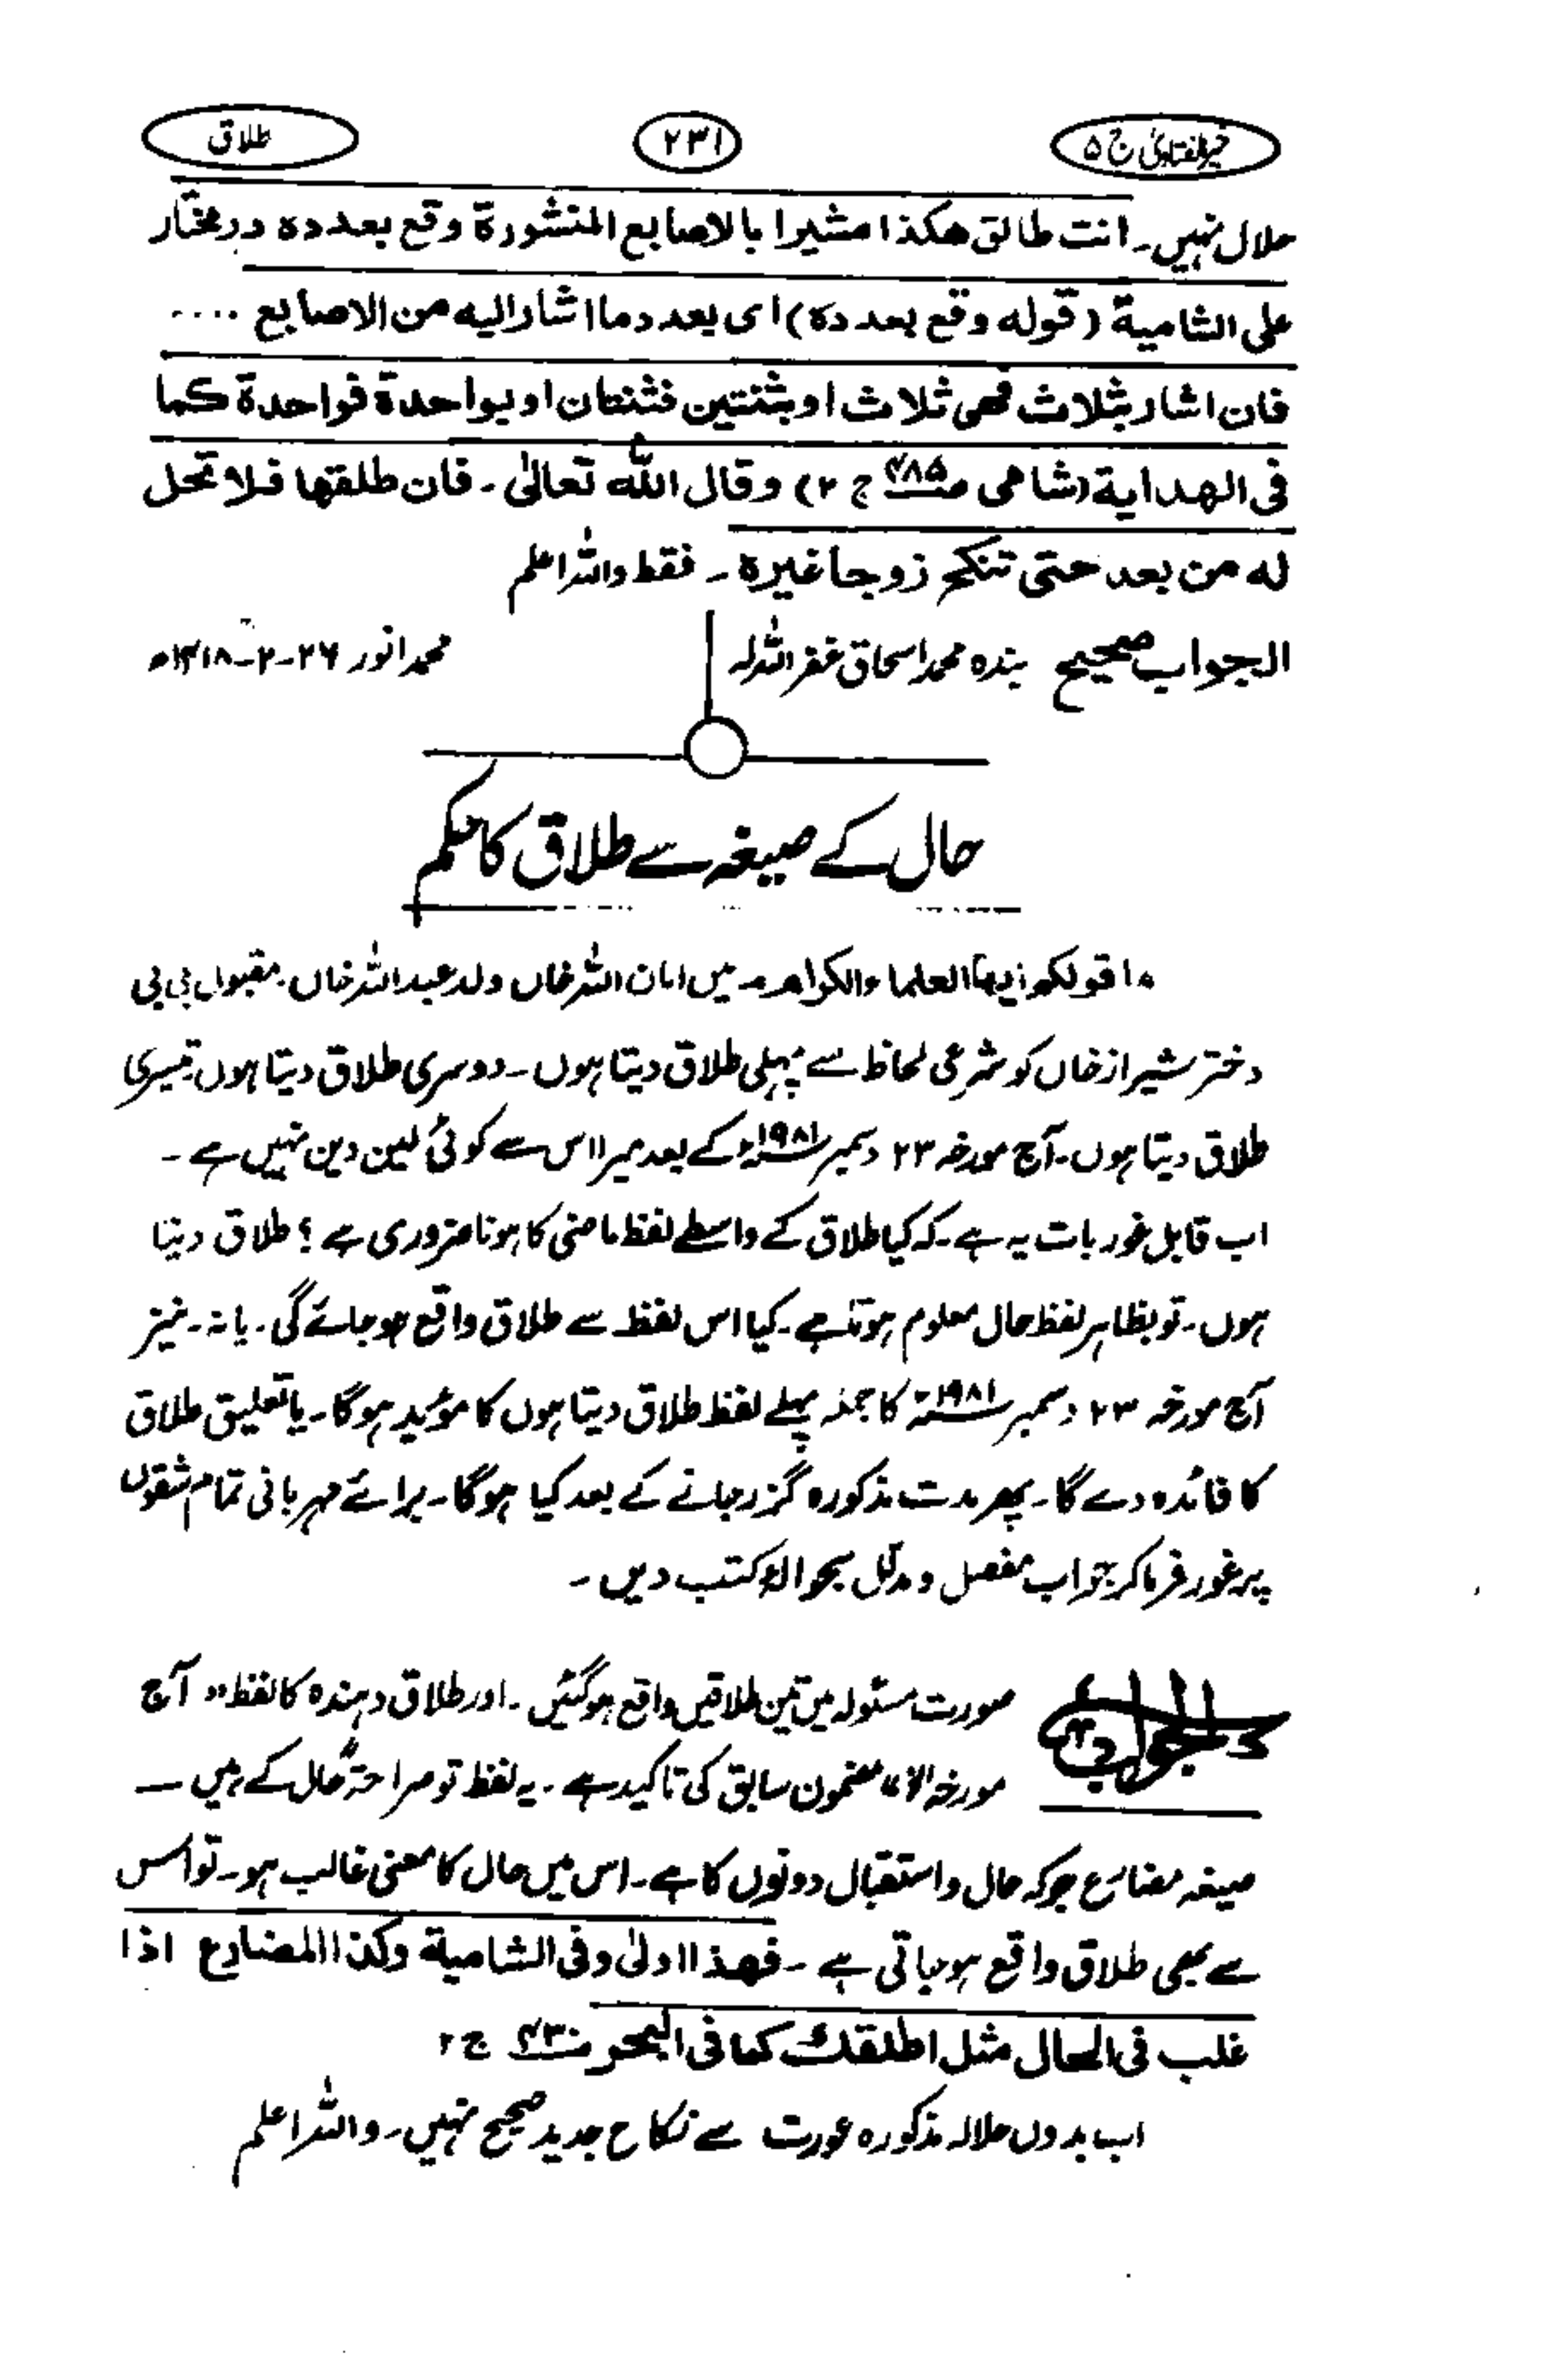 خیرالفتاویٰ ج ۵ ۲۳۱ طلاق
حلال نہیں۔ انت طالق هكذا مشيرا بالاصابع المنشورة وقع بعدده درمختار
على الشامية (قوله وقع بعدده) اى بعدد ما اشار اليه من الاصابع ....
فان اشار بثلاث فهى ثلاث او بثنتين فثنتان او بواحدة فواحدة كما
فى الهداية (شامى ص۴۸۵ ج ۲) وقال الله تعالىٰ۔ فان طلقها فلا تحل
له من بعد حتى تنكح زوجا غيره۔ فقط واللہ اعلم
الجواب صحیح بندہ محمد اسحاق غفر اللہ لہ
محمد انور ۲۶-۲-۱۴۱۸ھ
حال کے صیغہ سے طلاق کا حکم
ما قولكم ايها العلماء الكرام۔ میں امان اللہ خاں ولد عبد اللہ خاں۔ مقبول بی بی
دختر شیراز خاں کو شرعی لحاظ سے پہلی طلاق دیتا ہوں۔ دوسری طلاق دیتا ہوں، تیسری
طلاق دیتا ہوں۔ آج مورخہ ۲۳ دسمبر ۱۹۸۱ء کے بعد میرا اس سے کوئی لین دین نہیں ہے۔
اب قابل غور بات یہ ہے۔ کہ کیا طلاق کے واسطے لفظ ماضی کا ہونا ضروری ہے؟ طلاق دیتا
ہوں۔ تو بظاہر لفظ حال معلوم ہوتا ہے۔ کیا اس لفظ سے طلاق واقع ہو جائے گی۔ یا نہ۔ نیز
آج مورخہ ۲۳ دسمبر ۱۹۸۱ء کا جملہ پہلے لفظ طلاق دیتا ہوں کا مؤید ہوگا۔ یا تعلیق طلاق
کا فائدہ دے گا۔ پھر مدت مذکورہ گزر جانے کے بعد کیا ہوگا۔ برائے مہربانی تمام شقوں
پر غور فرما کر جواب مفصل و مدلل بحوالہ کتب دیں۔
الجواب صورت مسئولہ میں تین طلاقیں واقع ہوگئیں۔ اور طلاق دہندہ کا لفظ "آج
مورخہ الخ" مضمون سابق کی تاکید ہے۔ یہ لفظ تو صراحۃً حال کے ہیں ــ
صیغہ مضارع جو کہ حال و استقبال دونوں کا ہے۔ اس میں حال کا معنی غالب ہو۔ تو اس
سے بھی طلاق واقع ہو جاتی ہے۔ فهذا اولىٰ وفى الشامية وكذا المضارع اذا
غلب فى الحال مثل اطلقك كما فى البحر ص۴۳۰ ج ۲
اب بدوں حلالہ مذکورہ عورت سے نکاح جدید صحیح نہیں۔ واللہ اعلم